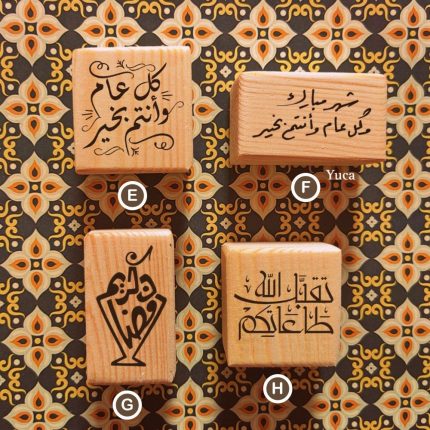 كل عام
وأنتم بخير
E
شهر مبارك
وكل عام وأنتم بخير
F
Yuca
رمضان كريم
G
تقبل الله
طاعاتكم
H